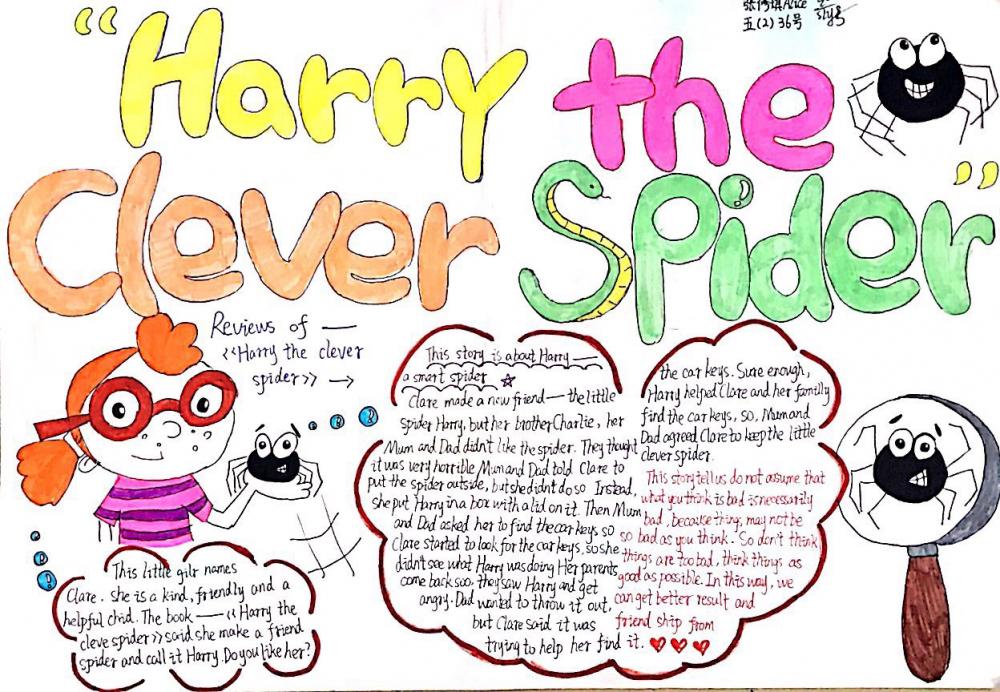 Alice
五(2) 36号
“Harry the
Clever Spider”
Reviews of —
《Harry the clever
spider》 →
This story is about Harry —
a smart spider ☆
Clare made a new friend — the little
spider Harry, but her brother Charlie, her
Mum and Dad didn't like the spider. They thought
it was very horrible Mum and Dad told Clare to
put the spider outside, but she didn't do so Instead,
she put Harry in a box with a lid on it. Then Mum
and Dad asked her to find the car keys so
Clare started to look for the car keys, so she
didn't see what Harry was doing Her parents
come back soo, they saw Harry and get
angry. Dad wanted to throw it out,
but Clare said it was
trying to help her find it.
the car keys. Sure enough,
Harry helped Clare and her familly
find the car keys, so, Mum and
Dad agreed Clare to keep the little
clever spider.
This story tell us do not assume that
what you think is bad is necessarily
bad, because things may not be
so bad as you think. So don't think
things are too bad, think things as
good as possible. In this way, we
can get better result and
friend ship from
This little gilr names
Clare. she is a kind, friendly and a
helpful chid. The book —《Harry the
cleve spider》said she make a friend
spider and call it Harry. Do you like her?